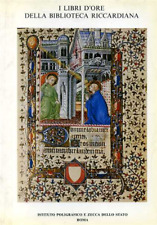 I LIBRI D'ORE
DELLA BIBLIOTECA RICCARDIANA
ISTITUTO POLIGRAFICO E ZECCA DELLO STATO
ROMA